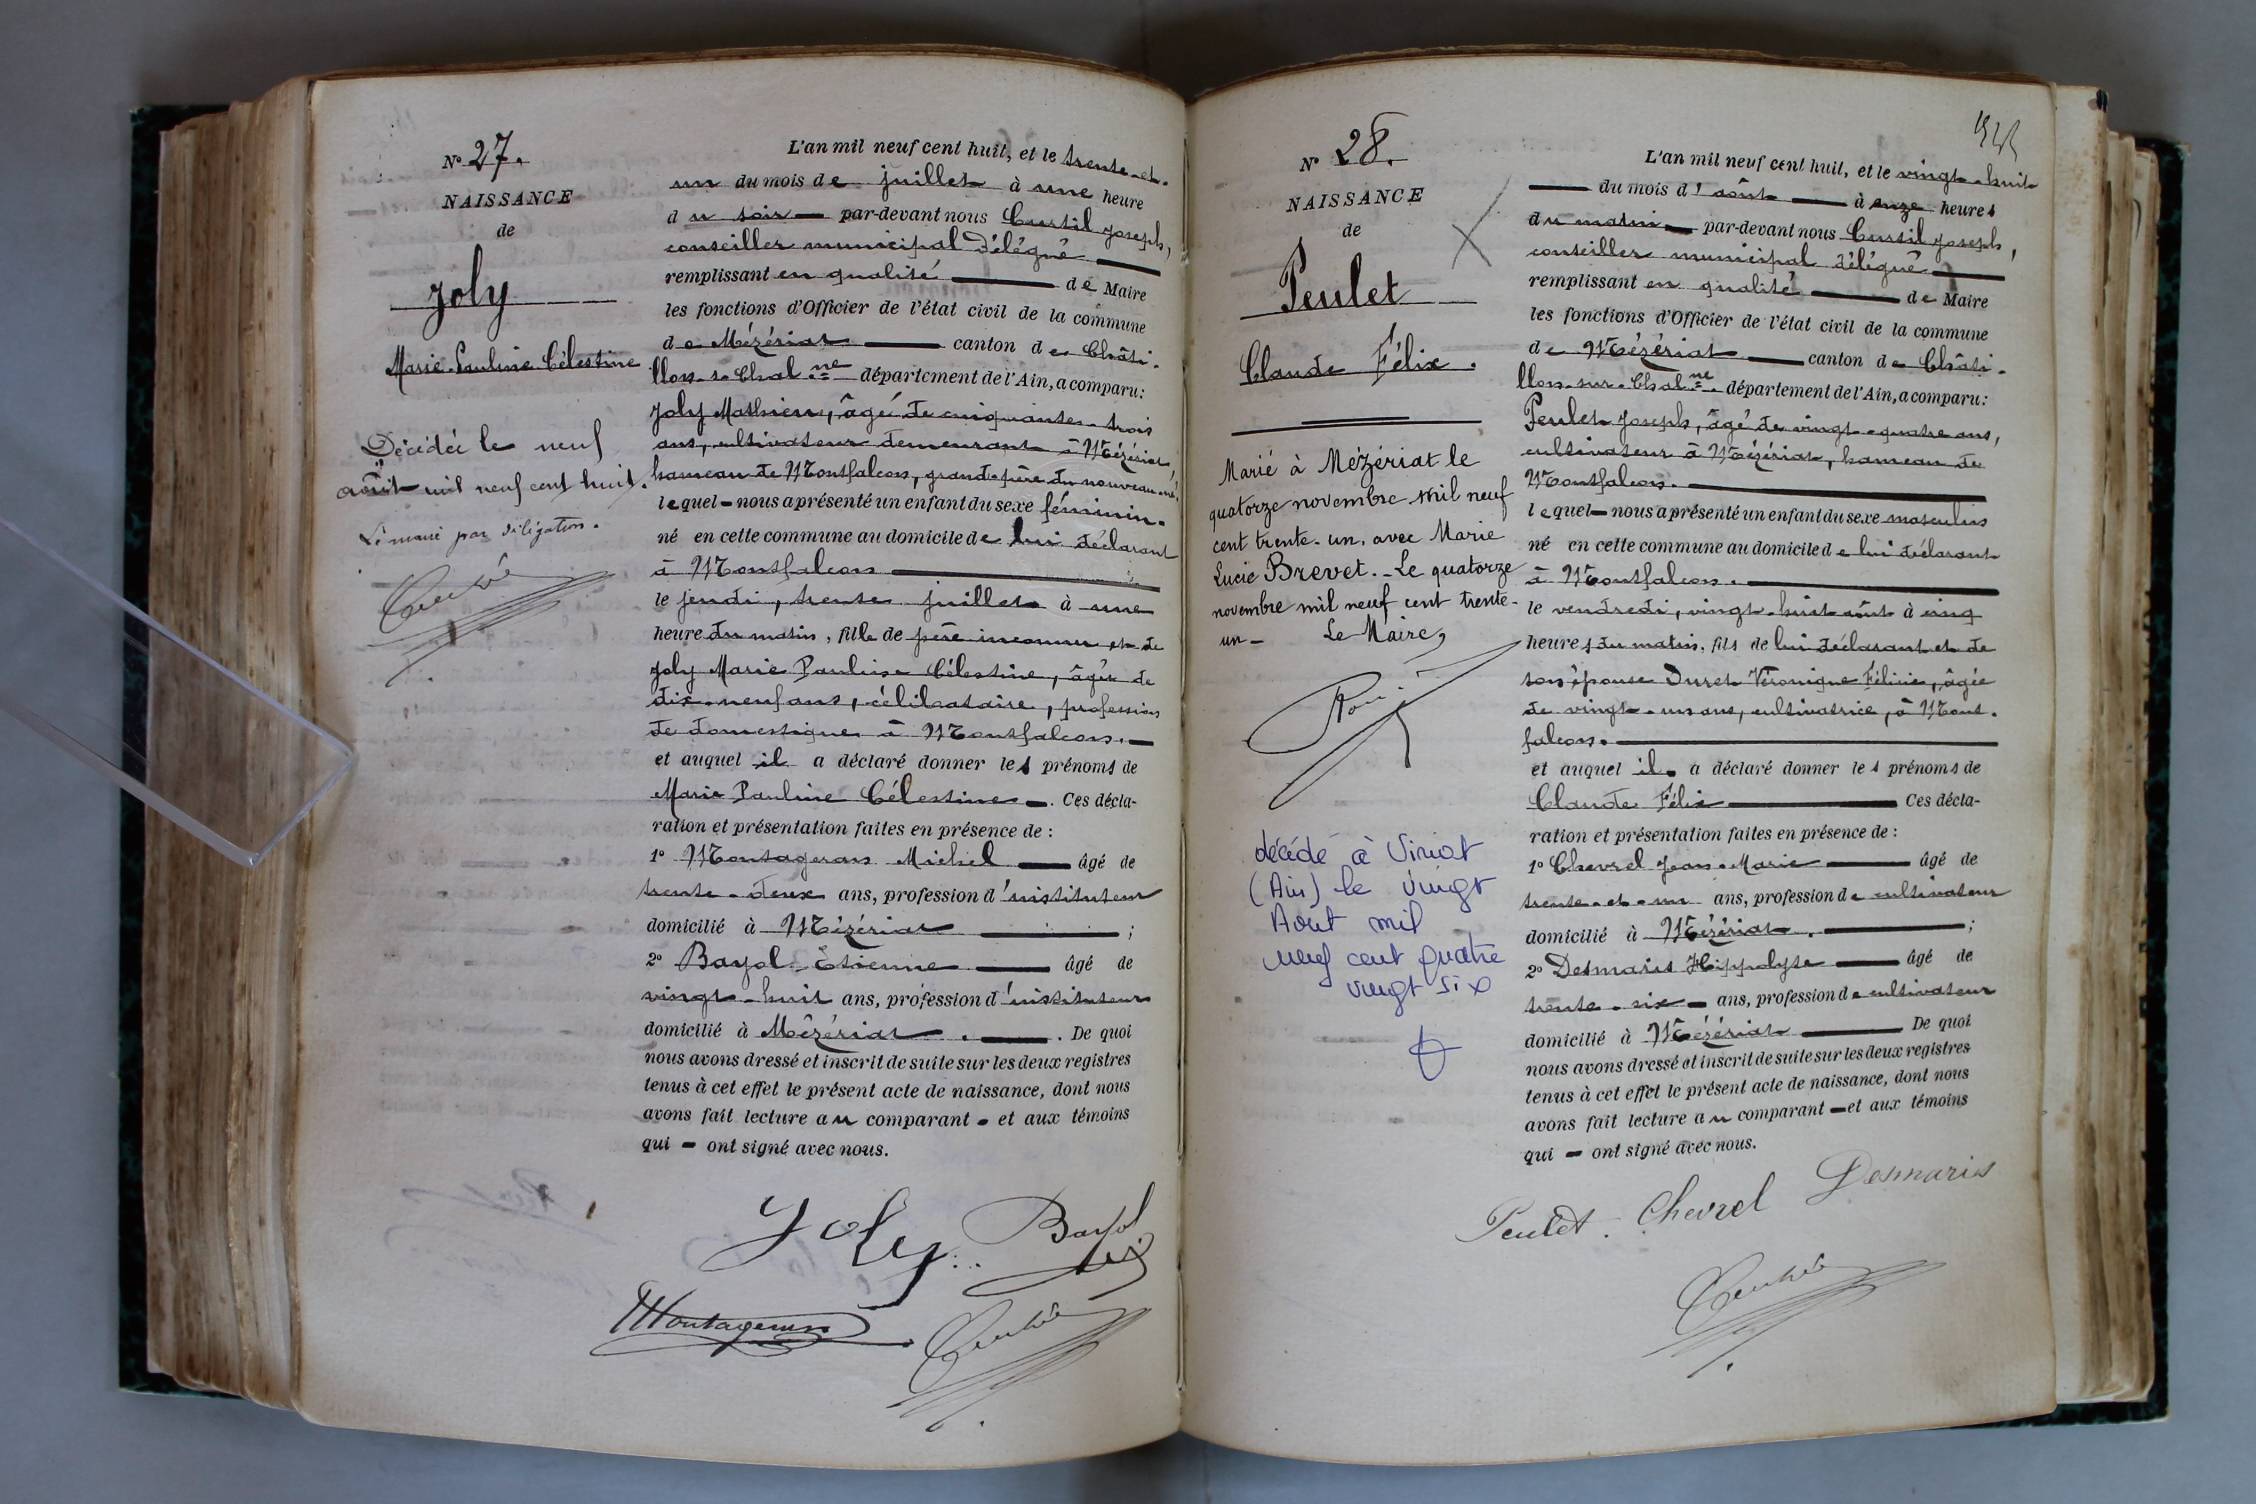 N° 27.
NAISSANCE
de
Joly
Marie Pauline Célestine
Décédée le neuf
août mil neuf cent huit.
Le maire par délégation.
L'an mil neuf cent huit, et le trente-et-
un du mois de juillet à une heure
du soir par-devant nous Curtil Joseph,
conseiller municipal délégué
remplissant en qualité de Maire
les fonctions d'Officier de l'état civil de la commune
de Mézériat canton de Châti-
llon-s-Chal.ne département de l'Ain, a comparu:
Joly Mathieu, âgé de cinquante-trois
ans, cultivateur demeurant à Mézériat,
hameau de Montfalcon, grand-père du nouveau-né,
lequel nous a présenté un enfant du sexe féminin
né en cette commune au domicile de lui déclarant
à Montfalcon
le jeudi, trente juillet à une
heure du matin, fille de père inconnu et de
Joly Marie Pauline Célestine, âgée de
dix-neuf ans, célibataire, profession
de domestique à Montfalcon.
et auquel il a déclaré donner les prénoms de
Marie Pauline Célestine. Ces décla-
ration et présentation faites en présence de :
1° Montagerans Michel âgé de
trente-deux ans, profession d'instituteur
domicilié à Mézériat ;
2° Bayol Étienne âgé de
vingt-huit ans, profession d'instituteur
domicilié à Mézériat. De quoi
nous avons dressé et inscrit de suite sur les deux registres
tenus à cet effet le présent acte de naissance, dont nous
avons fait lecture au comparant et aux témoins
qui ont signé avec nous.
Joly Bayol
N° 28.
NAISSANCE
de
Peulet
Claude Félix.
Marié à Mézériat le
quatorze novembre mil neuf
cent trente-un, avec Marie
Lucie Brevet. Le quatorze
novembre mil neuf cent trente-
un - Le Maire,
décédé à Viriat
(Ain) le vingt
Août mil
neuf cent quatre
vingt six
L'an mil neuf cent huit, et le vingt-huit
du mois d'août à onze heures
du matin par-devant nous Curtil Joseph,
conseiller municipal délégué
remplissant en qualité de Maire
les fonctions d'Officier de l'état civil de la commune
de Mézériat canton de Châti-
llon-sur-Chal.ne département de l'Ain, a comparu:
Peulet Joseph, âgé de vingt-quatre ans,
cultivateur à Mézériat, hameau de
Montfalcon.
lequel nous a présenté un enfant du sexe masculin
né en cette commune au domicile de lui déclarant
à Montfalcon.
le vendredi, vingt-huit août à cinq
heures du matin, fils de lui déclarant et de
son épouse Duret Véronique Félicie, âgée
de vingt-un ans, cultivatrice, à Mont-
falcon.
et auquel il a déclaré donner les prénoms de
Claude Félix Ces décla-
ration et présentation faites en présence de :
1° Chevrel Jean-Marie âgé de
trente-et-un ans, profession de cultivateur
domicilié à Mézériat. ;
2° Desmaris Hippolyte âgé de
trente-six ans, profession de cultivateur
domicilié à Mézériat De quoi
nous avons dressé et inscrit de suite sur les deux registres
tenus à cet effet le présent acte de naissance, dont nous
avons fait lecture au comparant et aux témoins
qui ont signé avec nous.
Peulet. Chevrel Desmaris